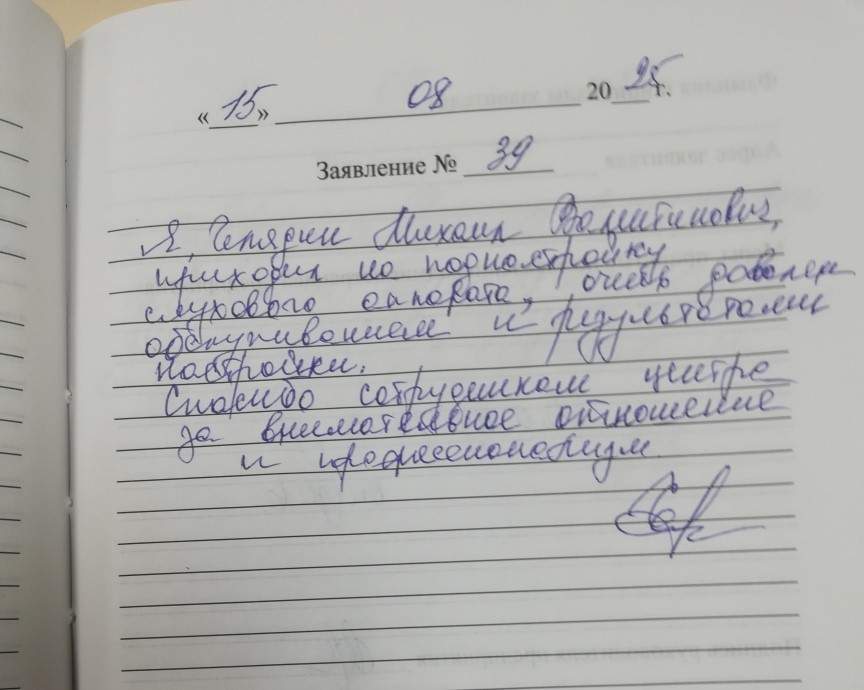 «15» 08 2025 г.
Заявление № 39
Я, Михаил Валентинович,
приходил на поднастройку
слухового аппарата, очень доволен
обслуживанием и результатами
настройки.
Спасибо сотрудникам центра
за внимательное отношение
и профессионализм